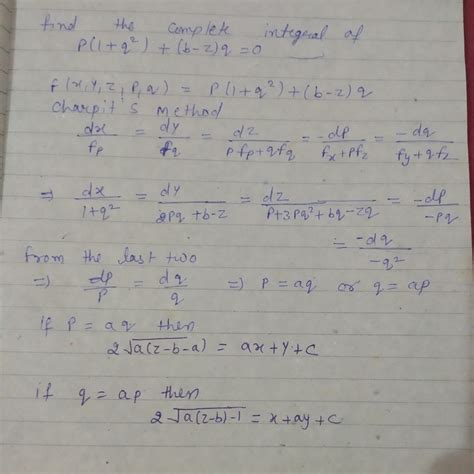 find the complete integral of
P(1+q²)+(b-z)q=0
f(x,y,z,P,q) = P(1+q²)+(b-z)q
Charpit's Method
dx/fp = dy/fq = dz/(Pfp+qfq) = -dp/(fx+pfz) = -dq/(fy+qfz)
⇒ dx/(1+q²) = dy/(2Pq+b-z) = dz/(P+3Pq²+bq-zq) = -dp/(-pq)
= -dq/(-q²)
from the last two
⇒ dp/P = dq/q ⇒ P=aq or q=ap
if P=aq then
2√(a(z-b-a)) = ax+y+c
if q=ap then
2√(a(z-b)-1) = x+ay+c